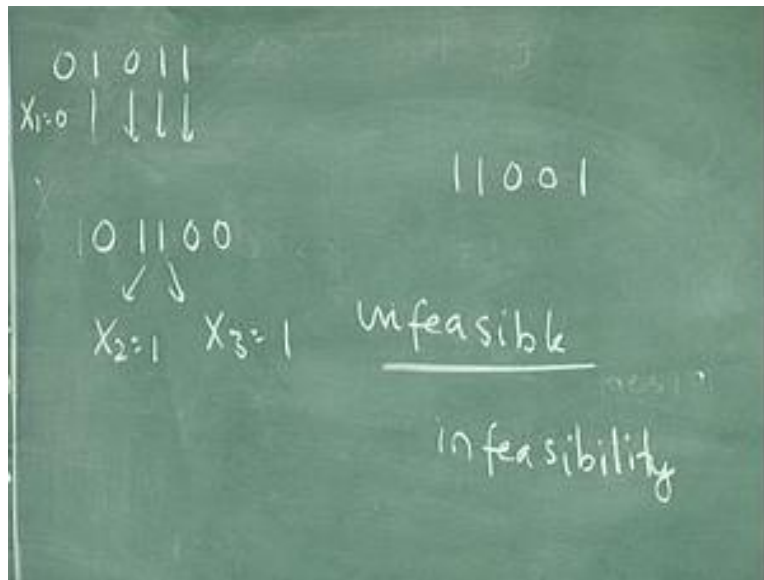 01011
X₁=0 | ↓ ↓ ↓
11001
101100
↙ ↘
X₂=1 X₃=1
infeasible
infeasibility